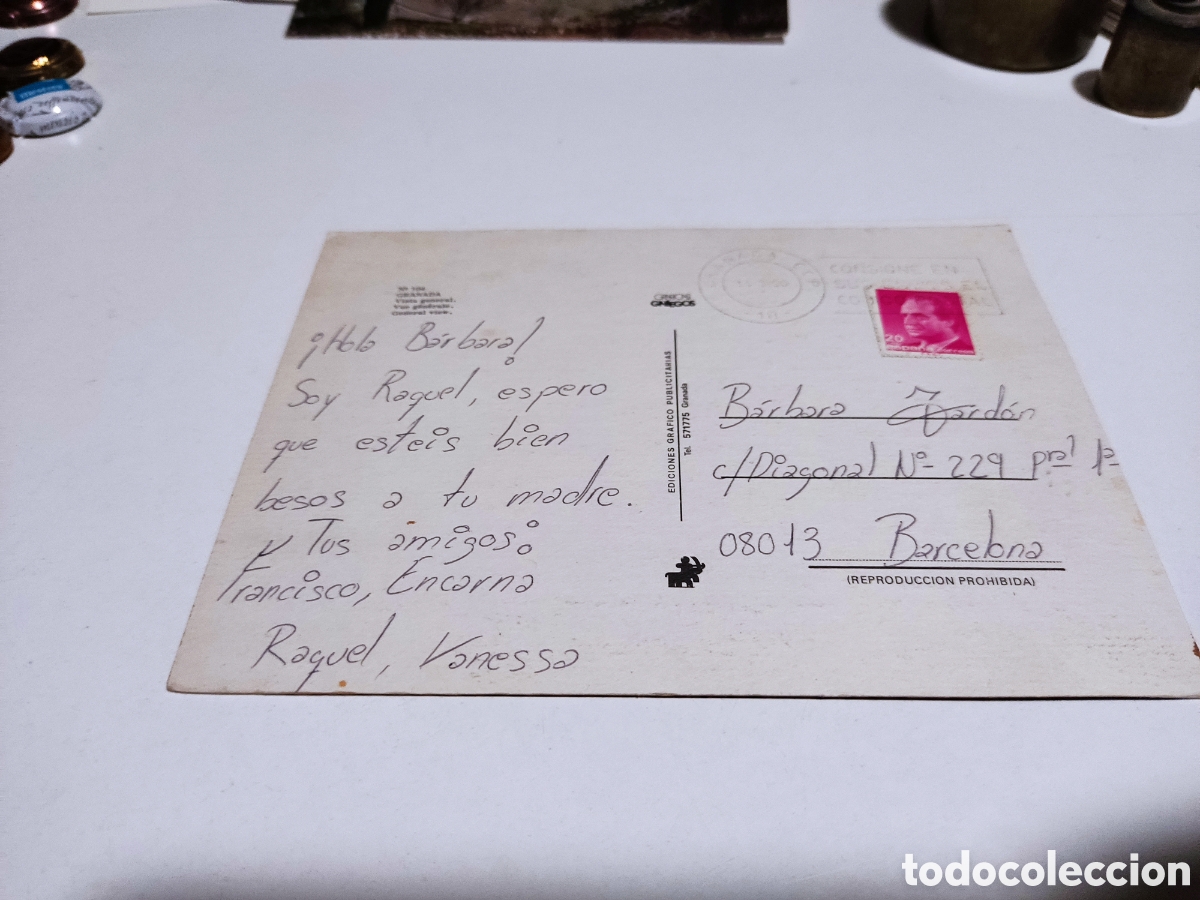 Nº 102
GRANADA
Vista general.
Vue générale.
General view.
¡Hola Bárbara!
Soy Raquel, espero
que esteis bien
besos a tu madre.
y Tus amigos:
Francisco, Encarna
Raquel, Vanessa
EDICIONES GRAFICO PUBLICITARIAS
Tel. 571775 Granada
CONSIGNE EN
20
Bárbara
c/Diagonal Nº 229 pral 1ª
08013 Barcelona
(REPRODUCCION PROHIBIDA)
todocoleccion